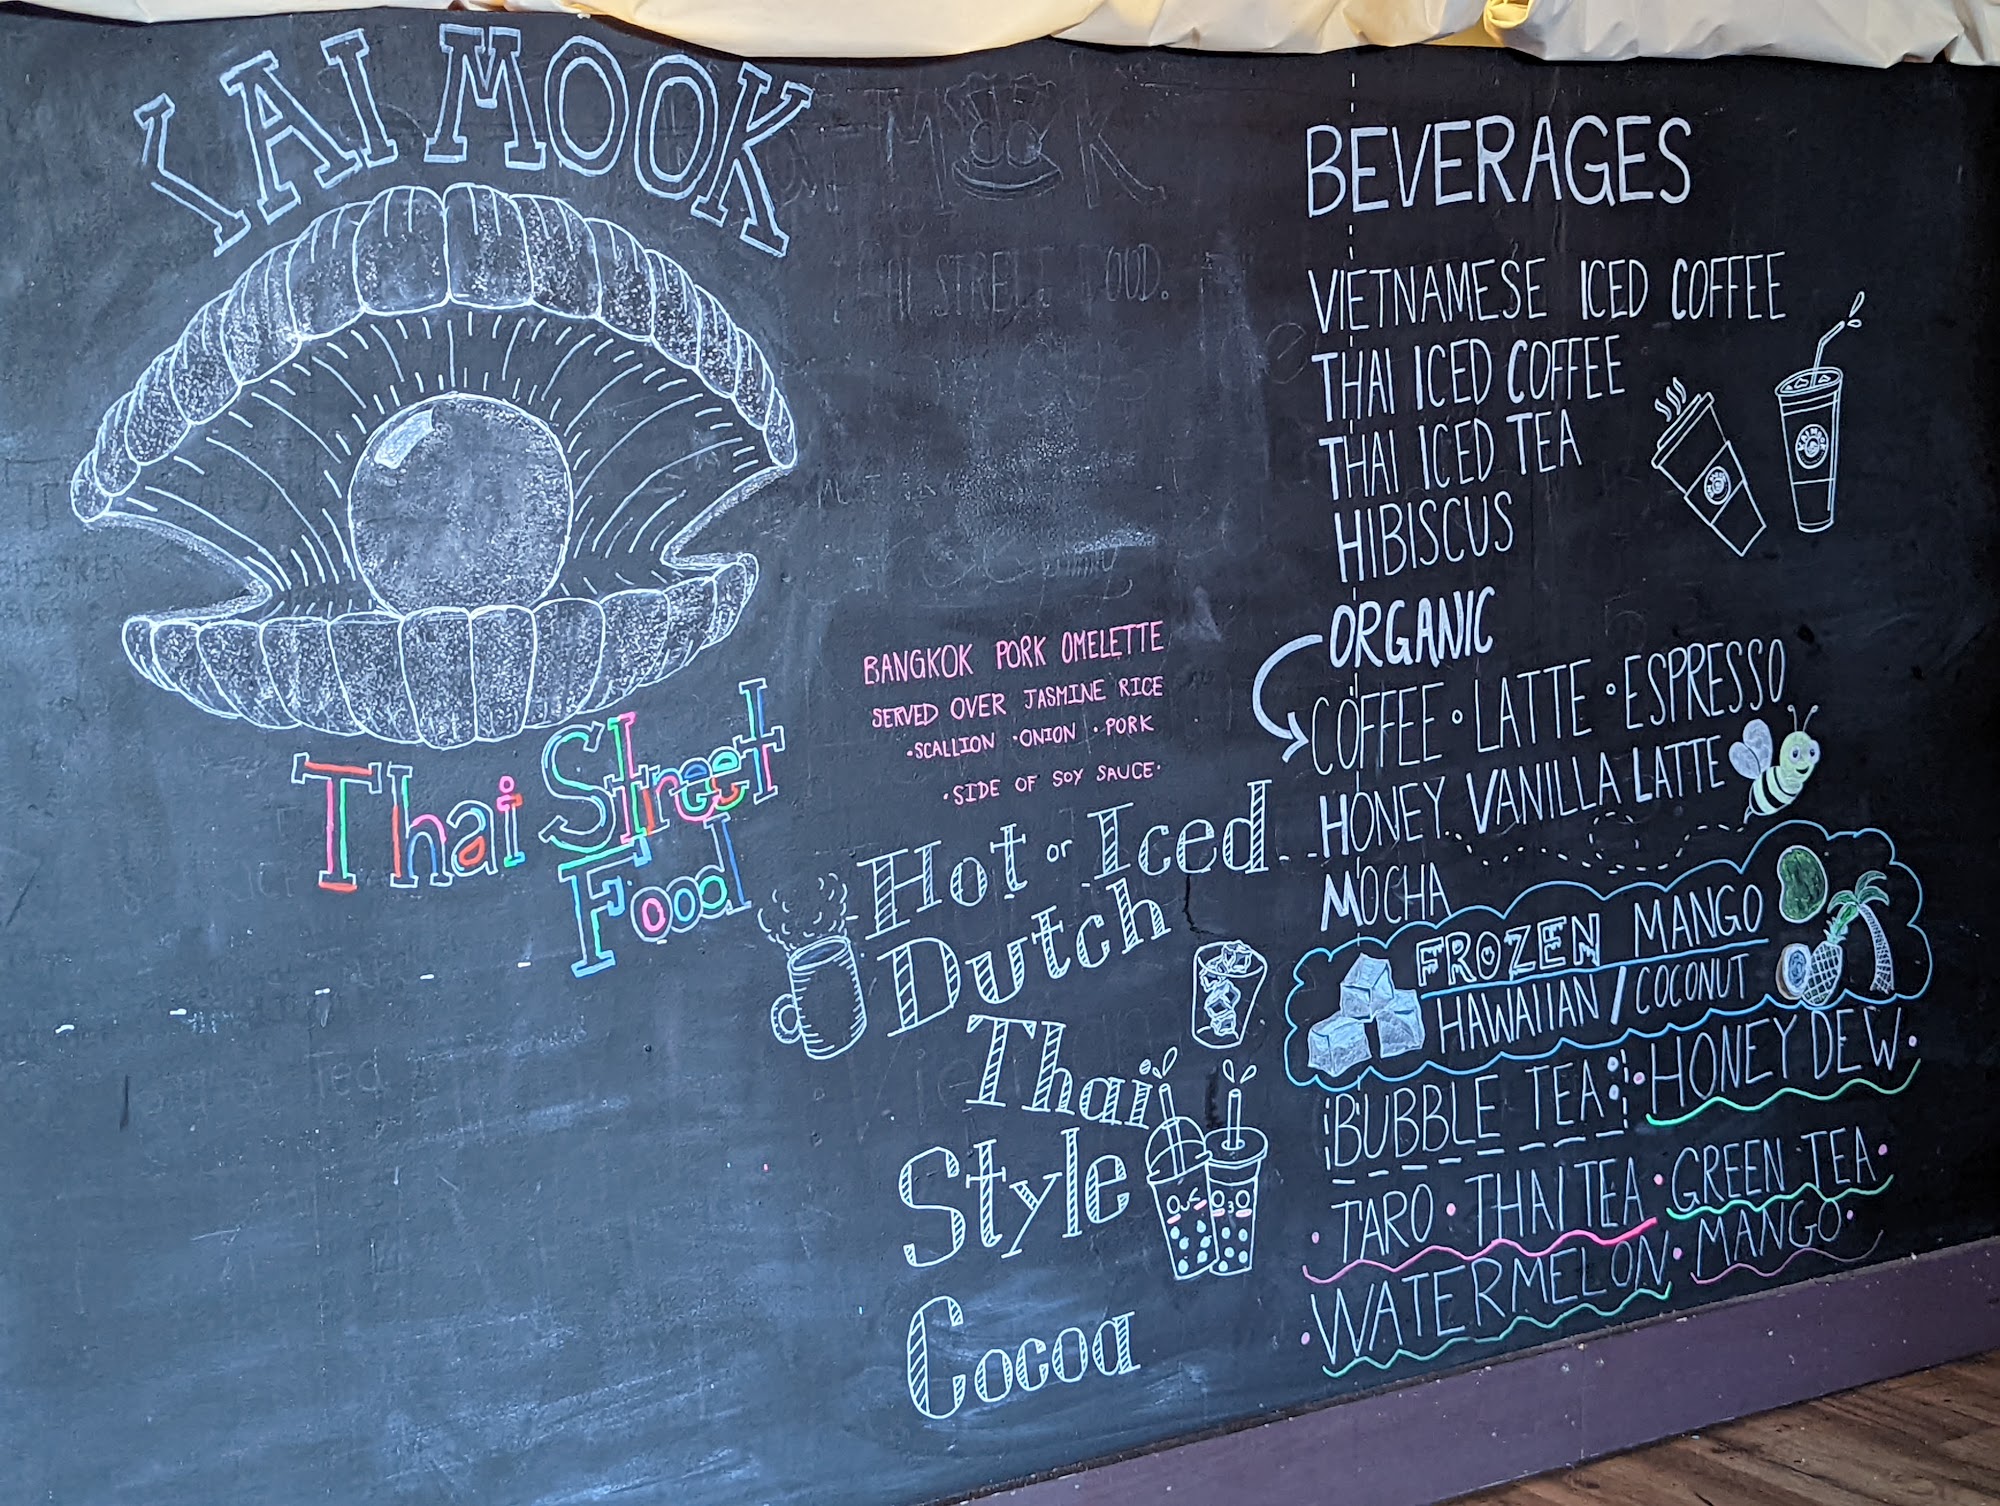 LAI MOOK
Thai Street
Food
BANGKOK PORK OMELETTE
SERVED OVER JASMINE RICE
•SCALLION •ONION •PORK
•SIDE OF SOY SAUCE•
Hot or Iced
Dutch
Thai
Style
Cocoa
BEVERAGES
VIETNAMESE ICED COFFEE
THAI ICED COFFEE
THAI ICED TEA
HIBISCUS
ORGANIC
COFFEE • LATTE • ESPRESSO
HONEY VANILLA LATTE
MOCHA
FROZEN MANGO
HAWAIIAN / COCONUT
BUBBLE TEA: • HONEYDEW •
• TARO • THAI TEA • GREEN TEA •
• WATERMELON • MANGO •